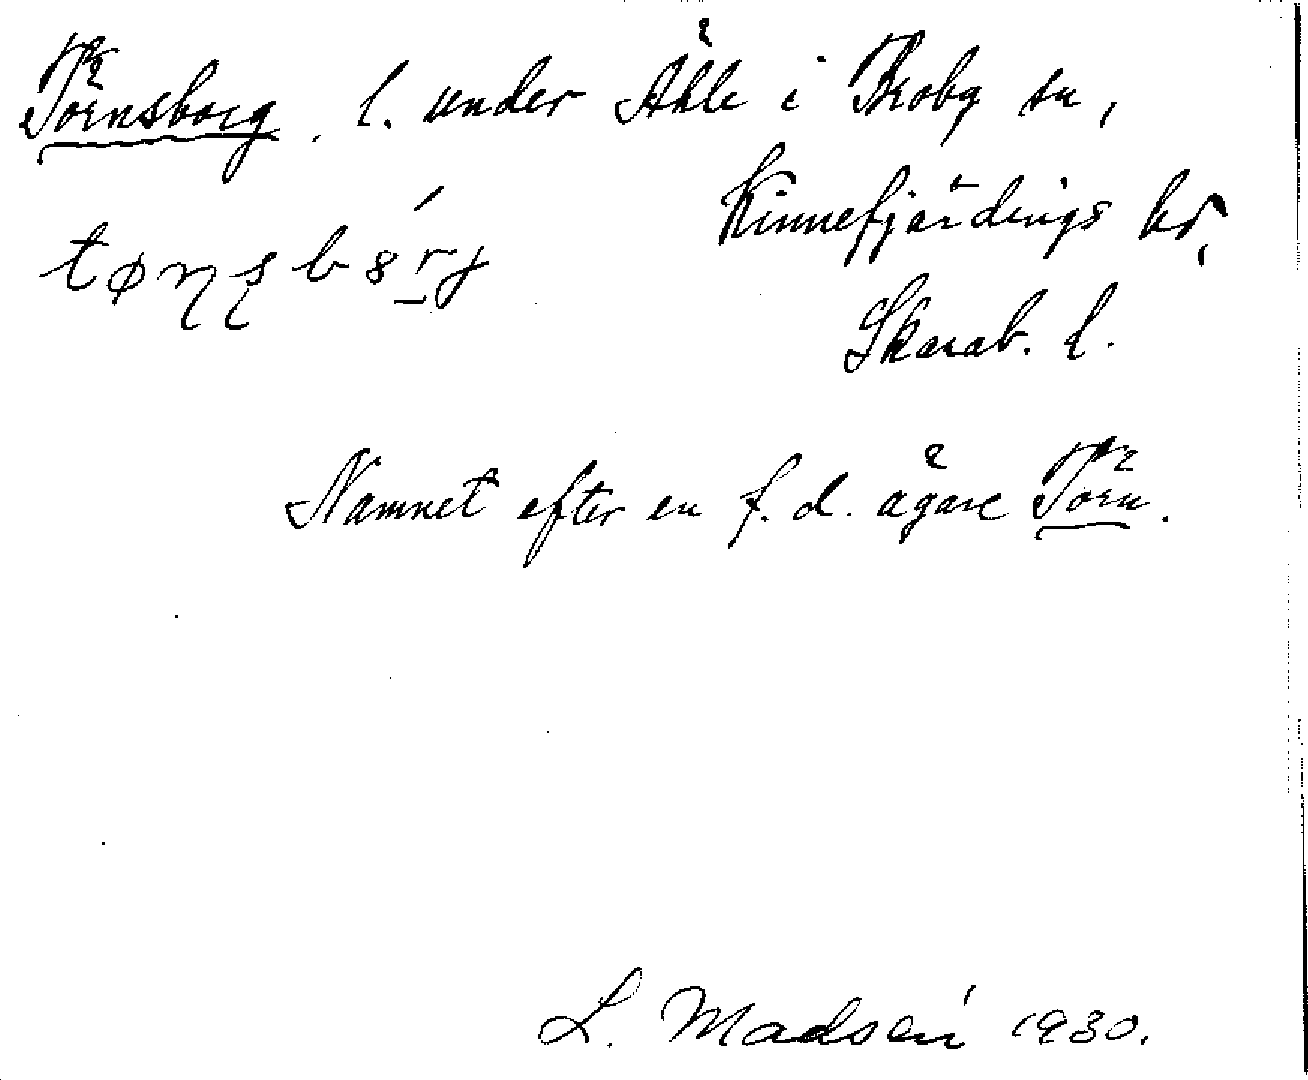 Törnsborg, l. under Åhle i Broby sn,
Kinnefjärdings hd,
Skarab. l.
Namnet efter en f. d. ägare Törn.
L. Madsén 1930.